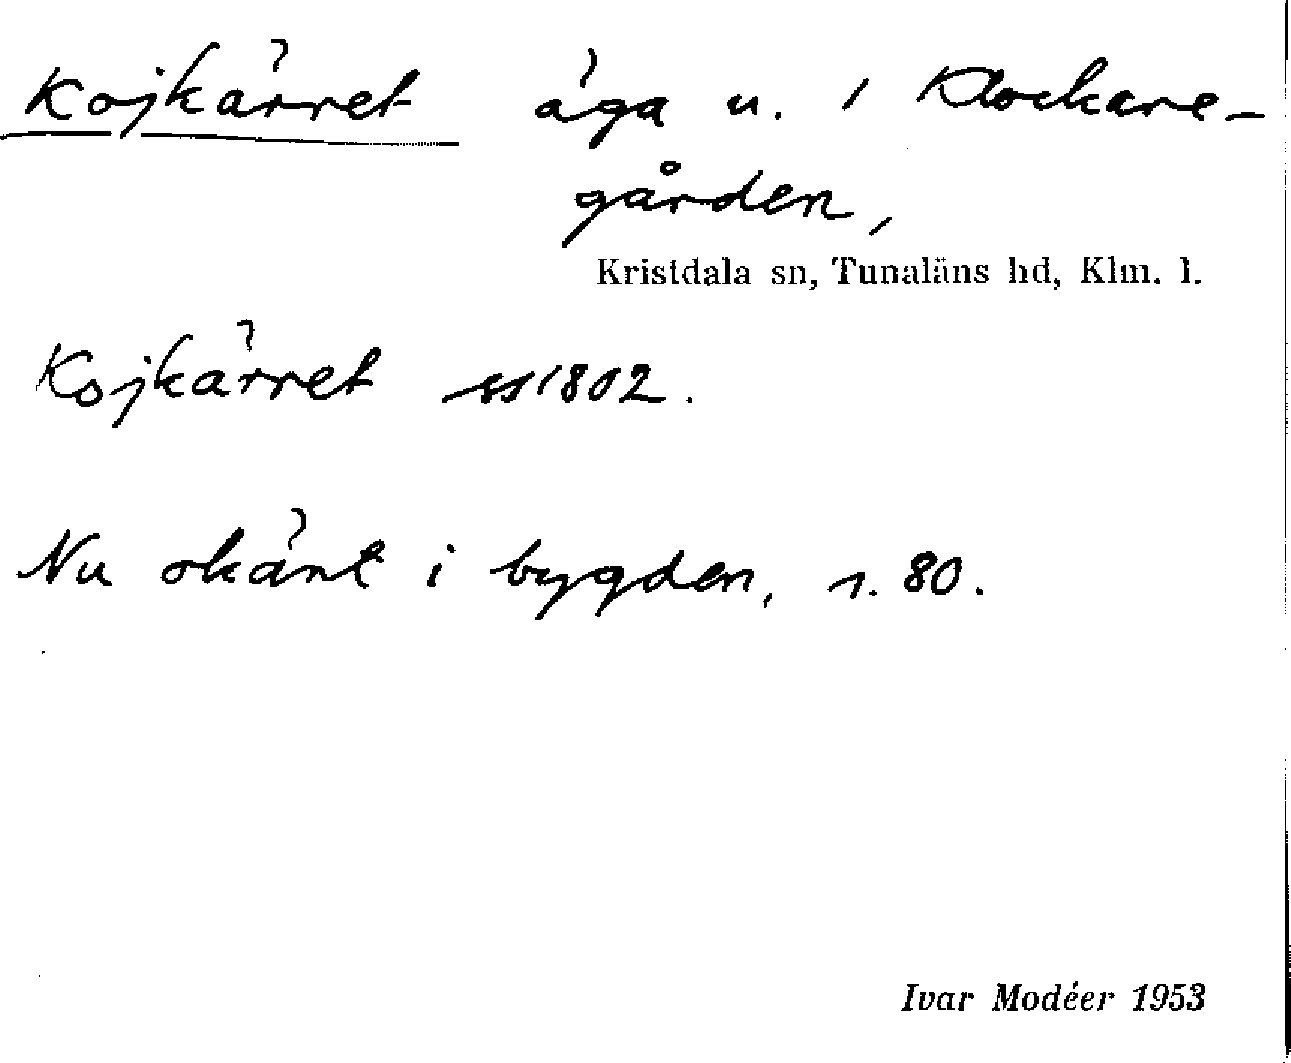 Kojkärret äga u. 1 Klockare-
gården,
Kristdala sn, Tunaläns hd, Klm. l.
Kojkärret ss1802.
Nu okänt i bygden, s. 80.
Ivar Modéer 1953